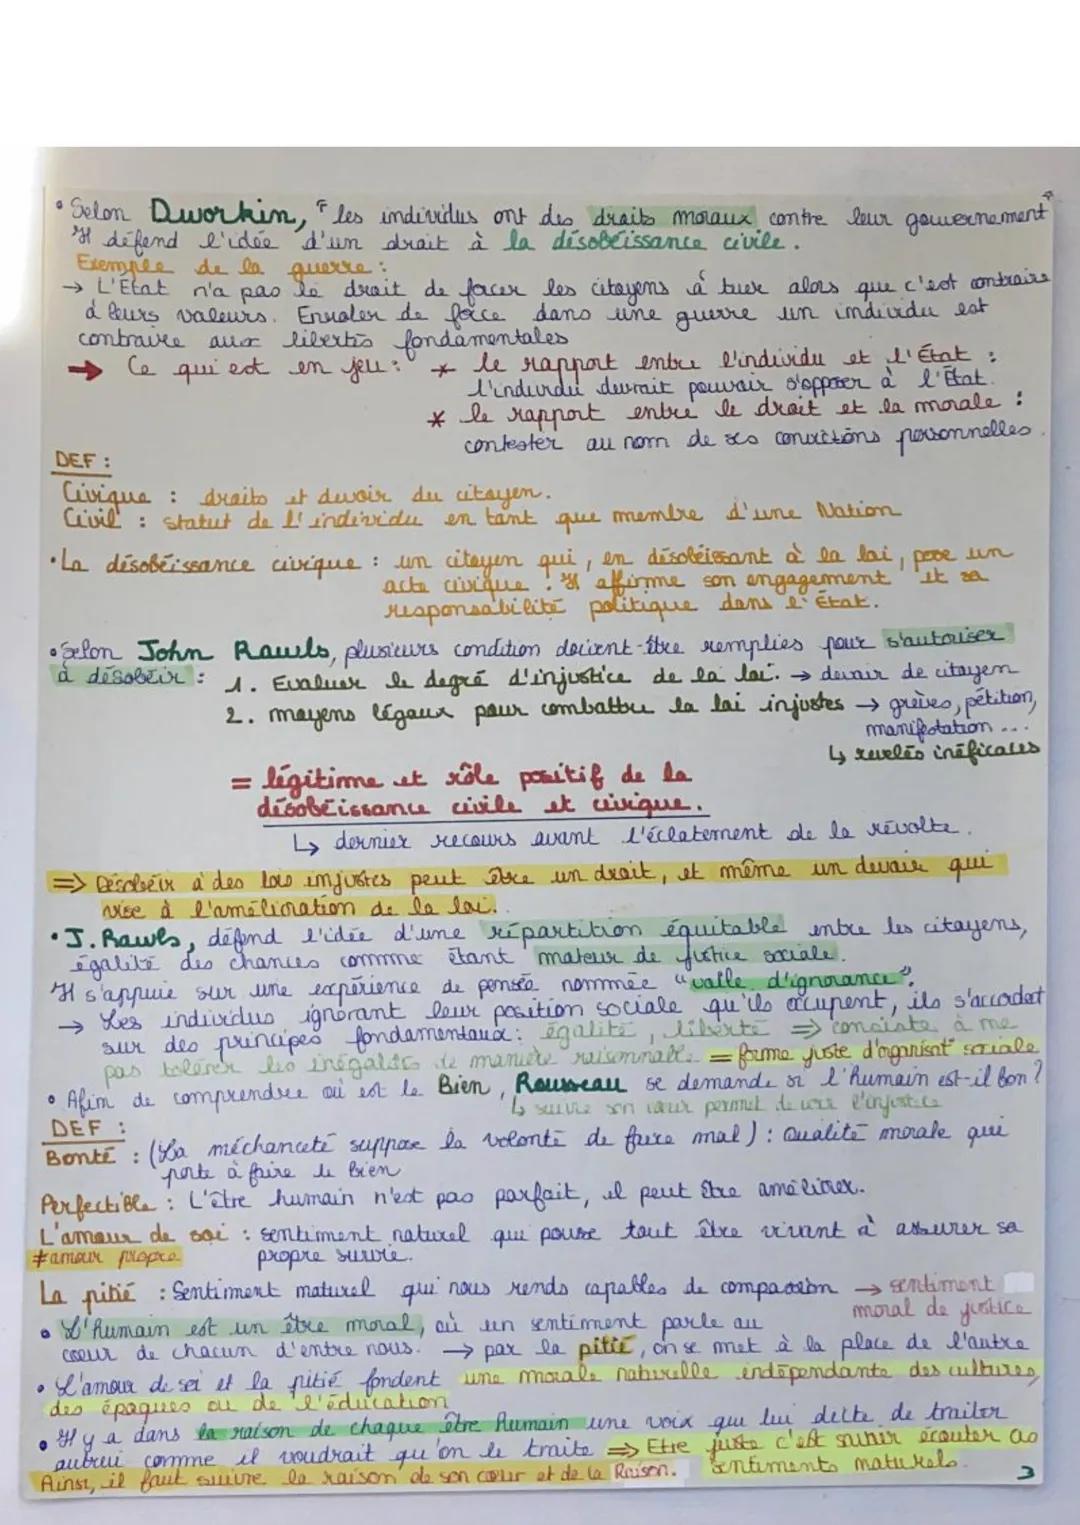 • Selon Dworkin, " les individus ont des droits moraux contre leur gouvernement "
Il défend l'idée d'un droit à la désobéissance civile.
Exemple de la guerre :
→ L'État n'a pas le droit de forcer les citoyens à tuer alors que c'est contraire
à leurs valeurs. Enroler de force dans une guerre un individu est
contraire aux libertés fondamentales
→ Ce qui est en jeu : * le rapport entre l'individu et l'État :
l'individu devrait pouvoir s'opposer à l'État.
* le rapport entre le droit et la morale :
contester au nom de ses convictions personnelles.
DEF :
Civique : droits et devoir du citoyen.
Civil : statut de l'individu en tant que membre d'une Nation
• La désobéissance civique : un citoyen qui, en désobéissant à la loi, pose un
acte civique. Il affirme son engagement et sa
responsabilité politique dans l'État.
• Selon John Rawls, plusieurs condition doivent-être remplies pour s'autoriser
à désobéir : 1. Evaluer le degré d'injustice de la loi. → devoir de citoyen
2. moyens légaux pour combattre la loi injustes → grèves, pétition,
manifestation ...
↳ revelés inéficaces
= légitime et rôle positif de la
désobéissance civile et civique.
↳ dernier recours avant l'éclatement de la révolte.
⇒ Désobéir à des lois injustes peut être un droit, et même un devoir qui
vise à l'amélioration de la loi.
• J. Rawls, défend l'idée d'une répartition équitable entre les citoyens,
égalité des chances comme étant moteur de justice sociale.
Il s'appuie sur une expérience de pensée nommée "voile d'ignorance".
→ Les individus ignorant leur position sociale qu'ils occupent, ils s'accordent
sur des principes fondamentaux : égalité, liberté ⇒ consiste à ne
pas tolérer les inégalités de manière raisonnable = forme juste d'organisat° sociale
• Afin de comprendre où est le Bien, Rousseau se demande si l'humain est-il bon ?
↳ suivre son cœur permet de voir l'injustice
DEF :
Bonté : (La méchanceté suppose la volonté de faire mal) : Qualité morale qui
porte à faire le bien
Perfectible : L'être humain n'est pas parfait, il peut être améliorer.
L'amour de soi : sentiment naturel qui pousse tout être vivant à assurer sa
≠ amour propre propre survie.
La pitié : Sentiment naturel qui nous rends capables de compassion → sentiment
moral de justice
• L'humain est un être moral, où un sentiment parle au
coeur de chacun d'entre nous. → par la pitié, on se met à la place de l'autre
• L'amour de soi et la pitié fondent une morale naturelle indépendante des cultures,
des époques ou de l'éducation
• Il y a dans la raison de chaque être humain une voix qui lui dicte de traiter
autrui comme il voudrait qu'on le traite ⇒ Etre juste c'est suivre écouter ces
Ainsi, il faut suivre la raison de son cœur et de la Raison. sentiments naturels.
3